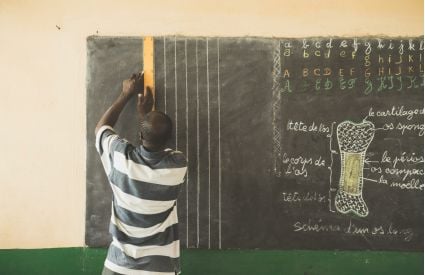 a b c d e f g h i j k l
a b c d e f g h i j k l
A B C D E F G H I J K L
A B C D E F G H I J K L
le cartilage
tête de l'os
os spong
le corps de
l'os
le périos
os compac
la moelle
tête de l'os
Schéma d'un os long